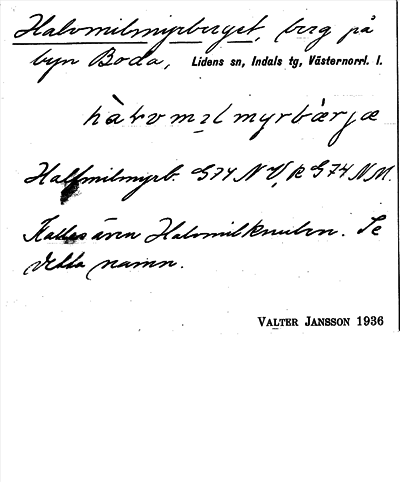 Halvmilmyrberget, berg på
byn Boda, Lidens sn, Indals tg, Västernorrl. l.
hàɫvmɪlmyrbærjæ
Halfmilmyrb. G74 NV, R G74 NM.
Kallas även Halvmilknulen. Se
detta namn.
VALTER JANSSON 1936